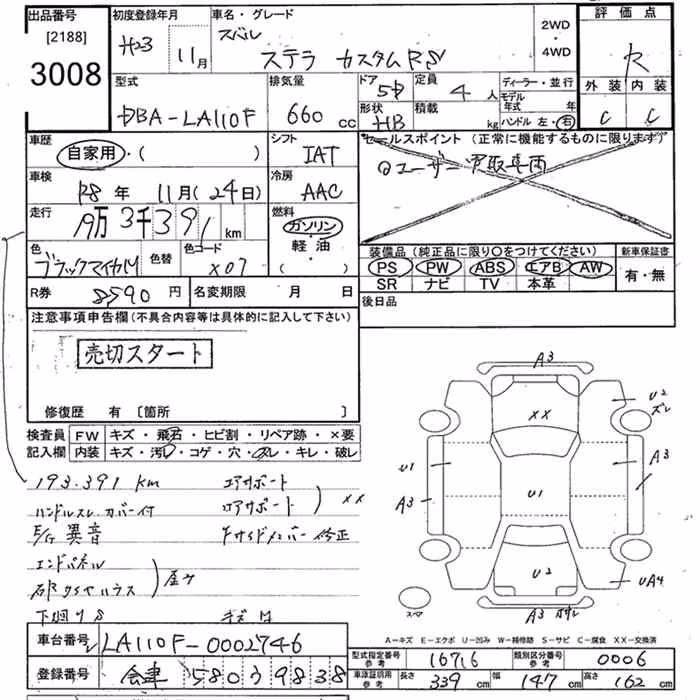 出品番号
[2188]
3008
初度登録年月
H23 11月
車名・グレード
スバル
ステラ カスタムRS
2WD
・
4WD
評価点
R
外装 内装
C C
型式
DBA-LA110F
排気量
660 cc
ドア 5D
定員 4 人
形状 HB
積載 kg
ディーラー・並行
モデル年式 年
ハンドル 左・右
車歴
自家用・( )
シフト
IAT
セールスポイント (正常に機能するものに限ります)
ユーザー買取車両
車検
R8 年 11月(24日)
冷房
AAC
走行
19万3千391 km
燃料
ガソリン
軽油
( )
色
ブラックマイカM
色替
色コード
X07
装備品 (純正品に限り○をつけてください)
新車保証書
PS PW ABS エアB AW
有・無
SR ナビ TV 本革
R券 8590 円
名変期限 月 日
後日品
注意事項申告欄 (不具合内容等は具体的に記入して下さい)
売切スタート
修復歴 有 [箇所 ]
検査員 FW キズ・飛石・ヒビ割・リペア跡・×要
記入欄 内装 キズ・汚れ・コゲ・穴・スレ・キレ・破レ
193.391 km
ハンドルスレ カバー付
E/G 異音
エンドパネル
コアサポート
XX
修正
下回りS
A3
XX
U2
ズレ
U1
A3
A3
U1
U2
UA4
スペア
A3
A-キズ E-エクボ U-凹み W-補修跡 S-サビ C-腐食 XX-交換済
車台番号 LA110F-0002746
登録番号 会津 580 39838
型式指定番号 参考 16716
類別区分番号 参考 0006
車庫証明用 参考 長さ 339 cm 幅 147 cm 高さ 162 cm